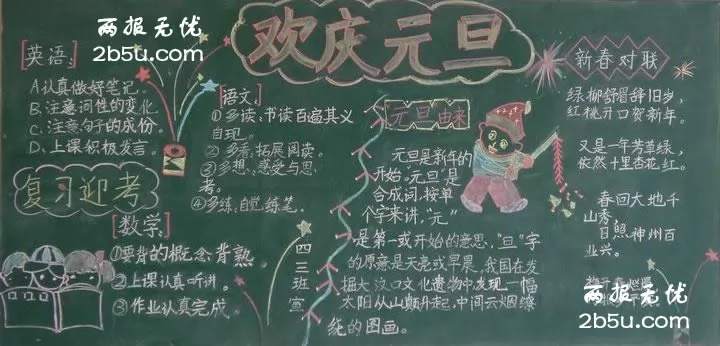 两报无忧
2b5u.com
欢庆元旦
英语:
A.认真做好笔记.
B.注意词性的变化
C.注意句子的成份.
D.上课积极发言.
复习迎考
语文:
①多读、书读百遍其义
自现.
②多看、拓展阅读.
③多想、感受与思
考.
④多练、自觉练笔.
数学:
①要背的概念、背熟.
②上课认真听讲.
③作业认真完成.
四三班宣
元旦由来
元旦是新年的
开始。元旦"是
合成词,按单
个字来讲,"元"
是第一或开始的意思,"旦"字
的原意是天亮或早晨,我国在发
掘大汶口文化遗物中发现一幅
太阳从山巅升起,中间云烟缭
绕的图画。
新春对联
绿柳舒眉辞旧岁,
红桃开口贺新年。
又是一年芳草绿,
依然十里杏花红。
春回大地千
山秀,
日照神州百
业兴。
两报无忧
2b5u.com